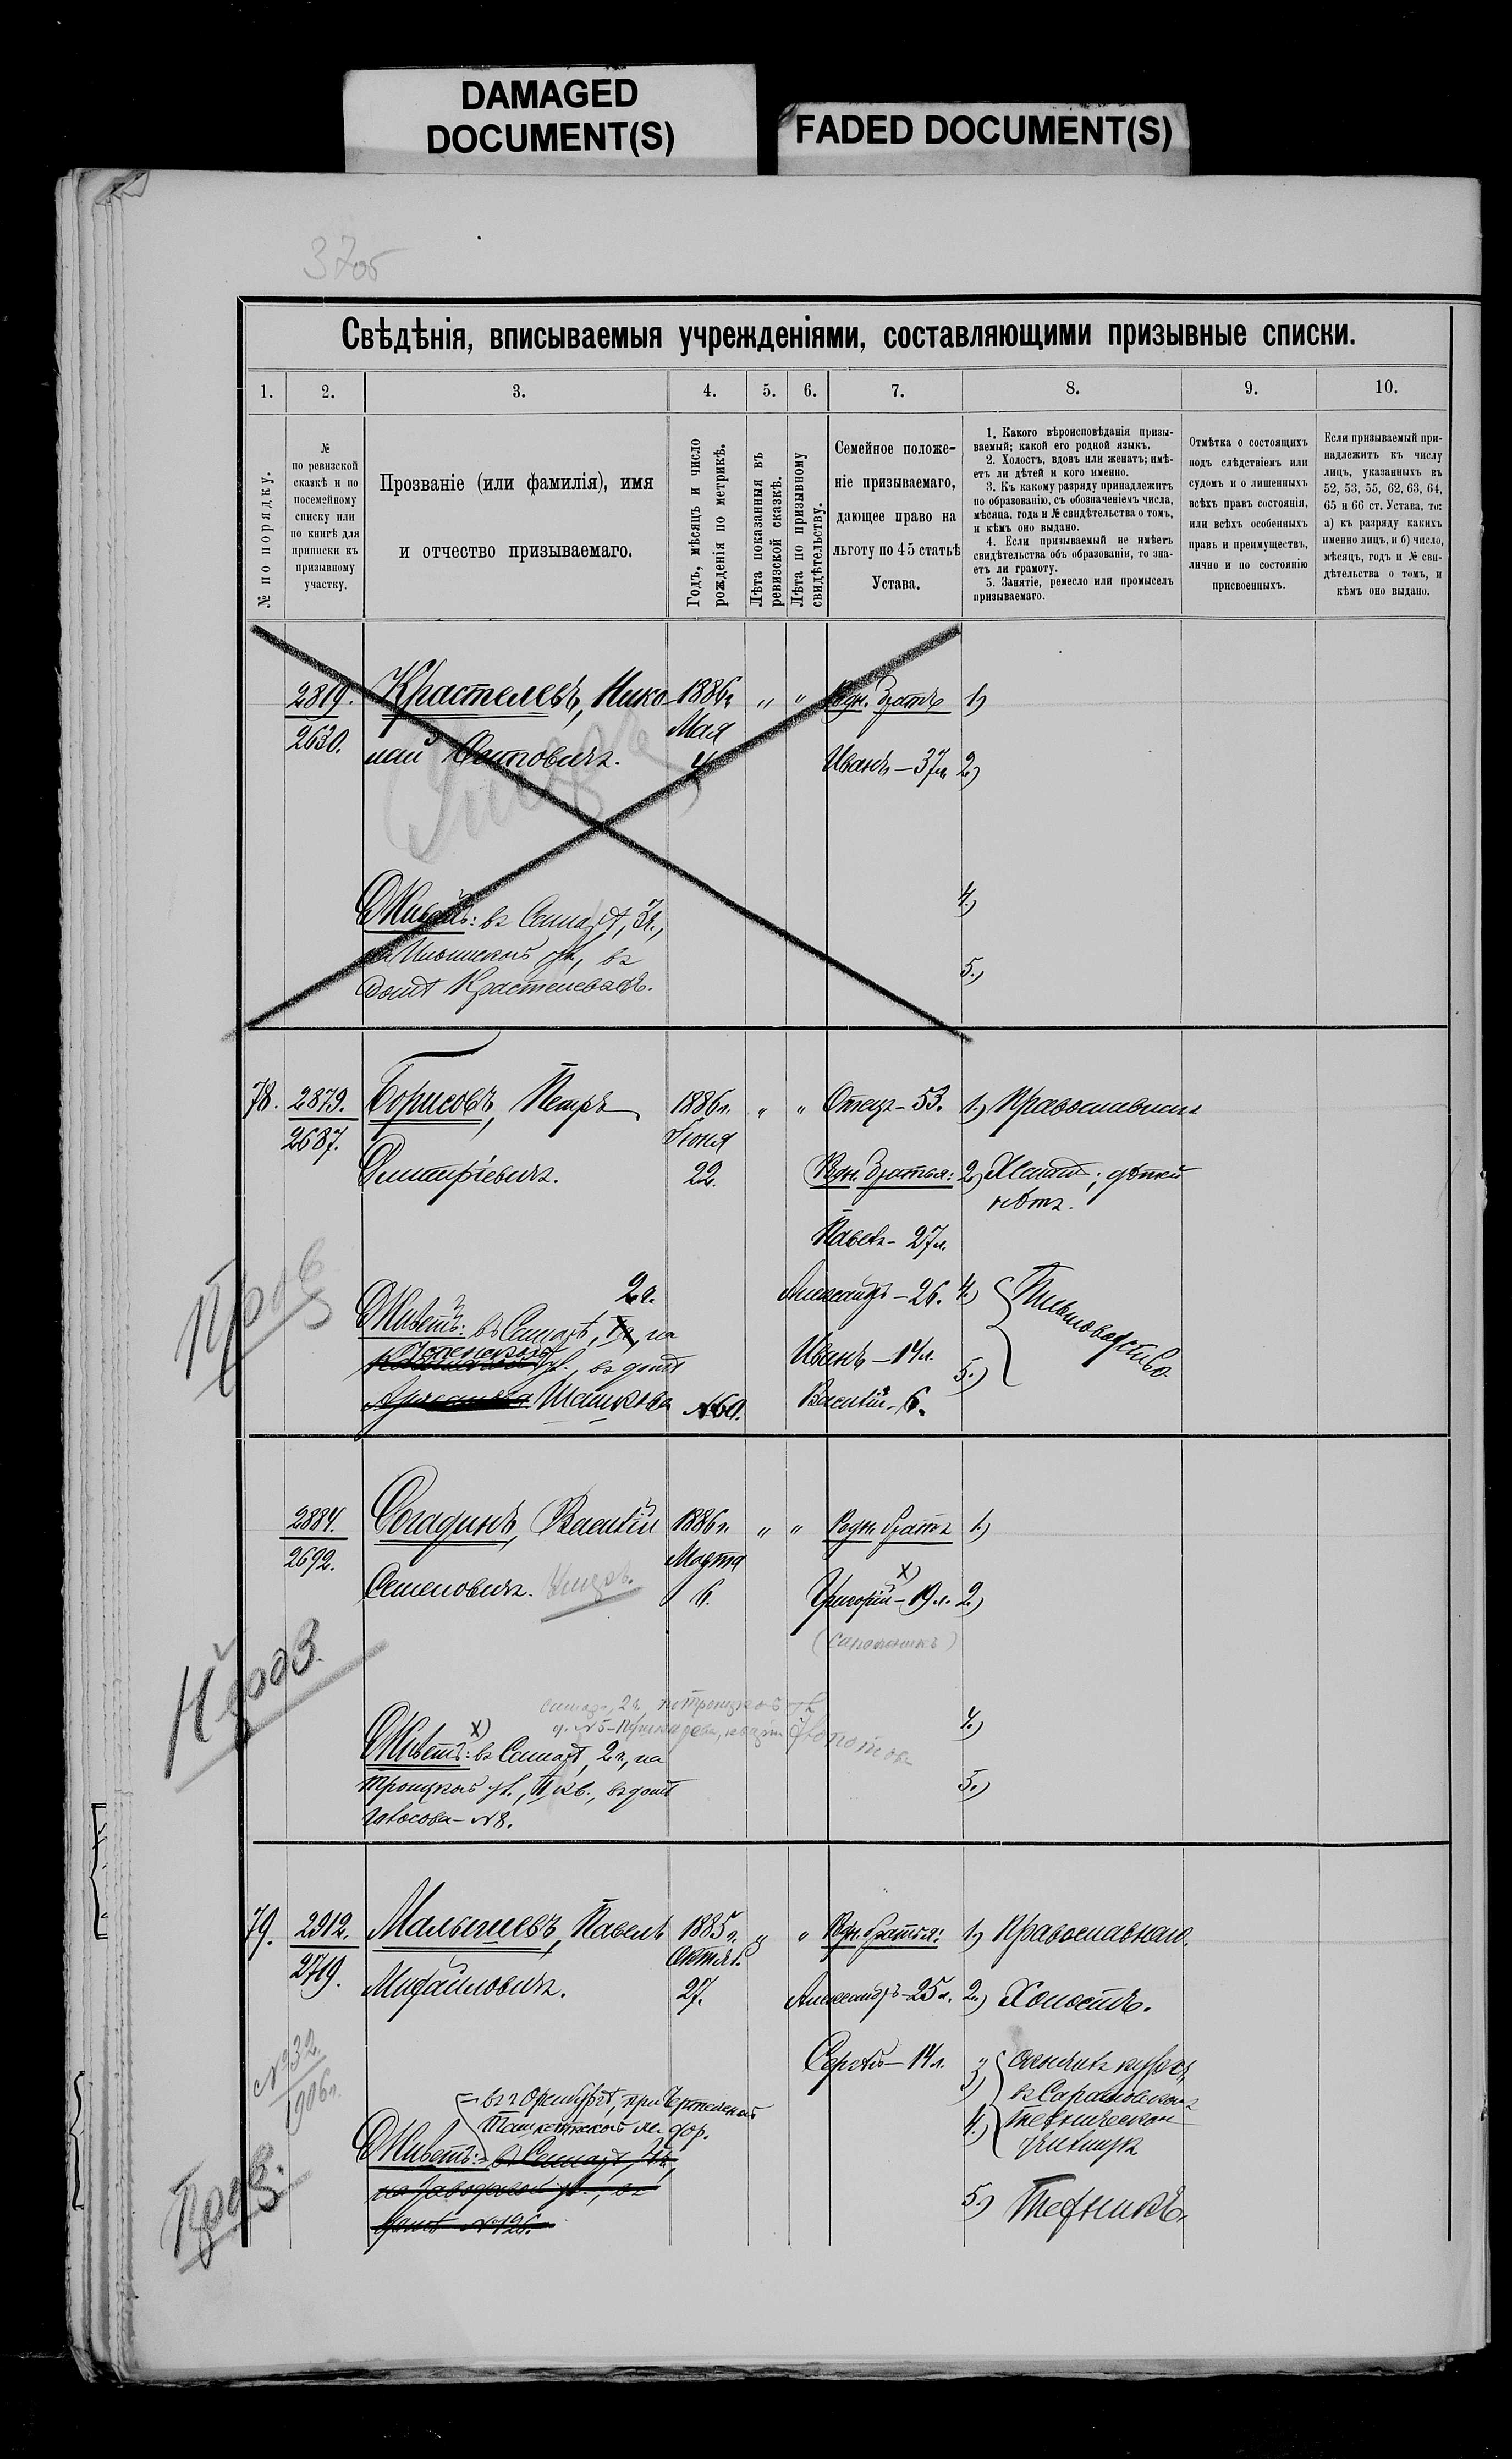 DAMAGED
DOCUMENT(S)
FADED DOCUMENT(S)
3705
Свѣдѣнія, вписываемыя учрежденіями, составляющими призывные списки.
1. 2. 3. 4. 5. 6. 7. 8. 9. 10.
№ по порядку.
№
по ревизской
сказкѣ и по
посемейному
списку или
по книгѣ для
приписки къ
призывному
участку.
Прозваніе (или фамилія), имя
и отчество призываемаго.
Годъ, мѣсяцъ и число
рожденія по метрикѣ.
Лѣта показанныя въ
ревизской сказкѣ.
Лѣта по призывному
свидѣтельству.
Семейное положе-
ніе призываемаго,
дающее право на
льготу по 45 статьѣ
Устава.
1. Какого вѣроисповѣданія призы-
ваемый; какой его родной языкъ.
2. Холостъ, вдовъ или женатъ; имѣ-
етъ ли дѣтей и кого именно.
3. Къ какому разряду принадлежитъ
по образованію, съ обозначеніемъ числа,
мѣсяца, года и № свидѣтельства о томъ,
и кѣмъ оно выдано.
4. Если призываемый не имѣетъ
свидѣтельства объ образованіи, то зна-
етъ ли грамоту.
5. Занятіе, ремесло или промыселъ
призываемаго.
Отмѣтка о состоящихъ
подъ слѣдствіемъ или
судомъ и о лишенныхъ
всѣхъ правъ состоянія,
или всѣхъ особенныхъ
правъ и преимуществъ,
лично и по состоянію
присвоенныхъ.
Если призываемый при-
надлежитъ къ числу
лицъ, указанныхъ въ
52, 53, 55, 62, 63, 64,
65 и 66 ст. Устава, то:
а) къ разряду какихъ
именно лицъ, и б) число,
мѣсяцъ, годъ и № сви-
дѣтельства о томъ, и
кѣмъ оно выдано.
2819. Крастелевъ, Нико 1886г. „ „ Родн. братъ 1)
2630. лай Мая
4 Иванъ – 37л. 2)
4.)
Живетъ: въ Самарѣ, 3ч.,
на Ильинской ул., въ
5.)
домѣ Крастелевахъ.
78. 2879. Борисовъ, Петръ 1886г. „ „ Отецъ – 53. 1.) Православнаго
2687. Іюня
Димитріевичъ. 22. Родн. братья: 2) Женатъ; дѣтей
нѣтъ.
Павелъ – 27л.
Пров
2ч. Александръ – 26. 4.) Письмоводство
Живетъ: въ Самарѣ, на
Успенской ул., въ домѣ Иванъ – 14л. 5.)
Шашкова №60. Василій – 6.
2884. Согадинъ, Василій 1886г. „ „ Родн. братъ 1.)
2692. Марта
Семеновичъ. 6. Григорій х) – 19л. 2.)
(сапожникъ)
4.)
Живетъ: х) въ Самарѣ, 2ч., на
Троицкой ул., II кв., въ домѣ 5.)
№8.
79. 2912. Малышевъ, Павелъ 1885г. „ „ Родн. братья: 1.) Православнаго.
2719. Октяб.
Михайловичъ. 27. Александръ – 25л. 2.) Холостъ.
№32
1906г.
Сергѣй – 14л. 3) окончилъ курсъ
въ Саратовскомъ
въ г. Оренбургѣ, при Чертежной
Ташкентской ж. дор. 4.) Техническомъ
училищѣ
Живетъ: въ Самарѣ, 4ч.,
на Заводской ул., въ 5.) Техникъ.
домѣ №126.
Пров.